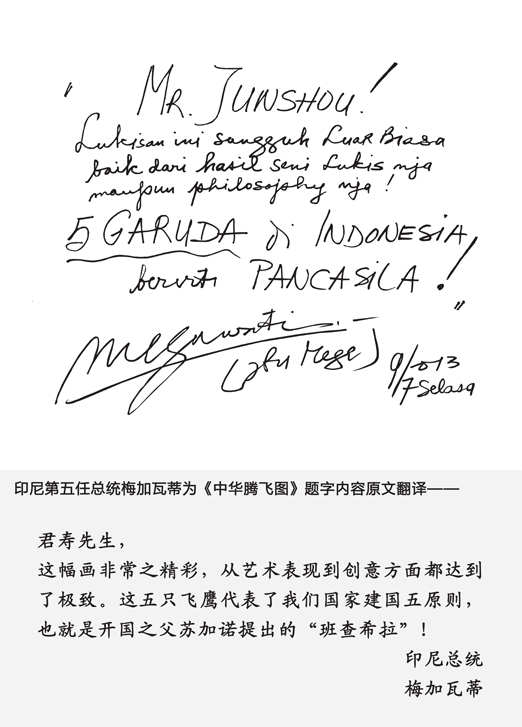 " MR. JUNSHOU!
Lukisan ini sungguh LUAR Biasa
baik dari hasil seni Lukis nja
maupun philosophy nja!
5 GARUDA di INDONESIA,
berarti PANCASILA! "
Megawati
9/2013
/7 Selasa
印尼第五任总统梅加瓦蒂为《中华腾飞图》题字内容原文翻译——
君寿先生，
这幅画非常之精彩，从艺术表现到创意方面都达到
了极致。这五只飞鹰代表了我们国家建国五原则，
也就是开国之父苏加诺提出的“班查希拉”！
印尼总统
梅加瓦蒂